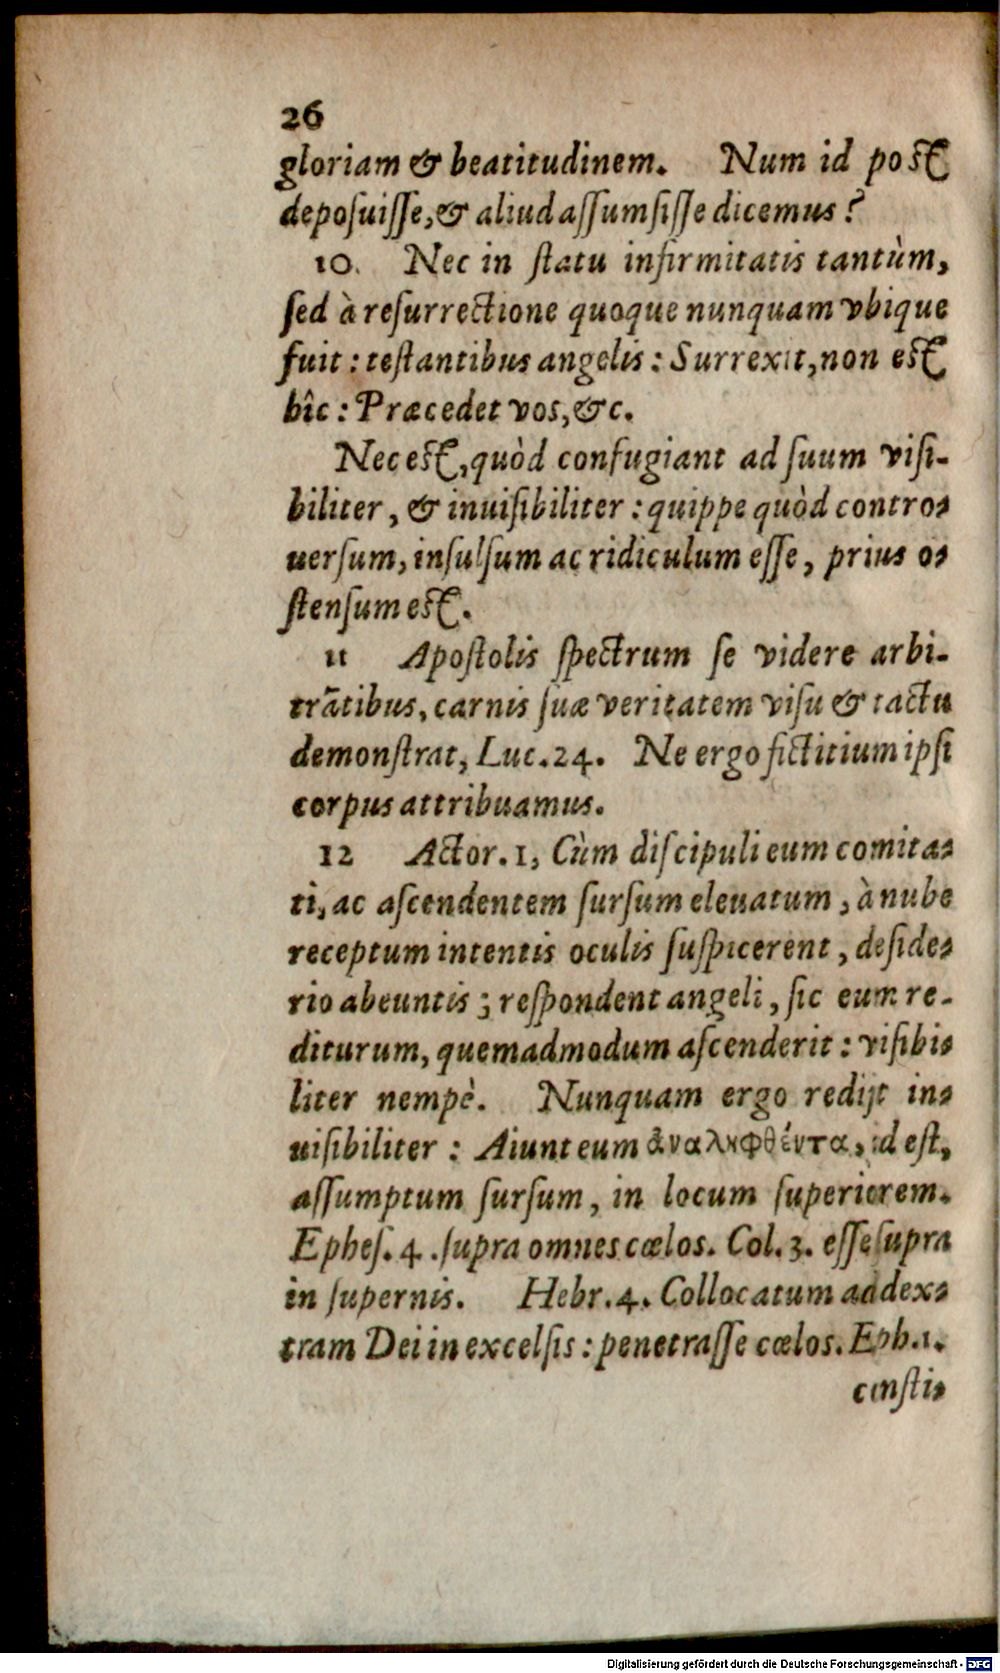 26
gloriam & beatitudinem. Num id post
deposuiſſe, & aliud aſſumſiſſe dicemus?
10. Nec in ſtatu infirmitatis tantùm,
ſed à reſurrectione quoque nunquam vbique
fuit: teſtantibus angelis: Surrexit, non est
hîc: Præcedet vos, &c.
Nec est, quòd confugiant ad ſuum viſi-
biliter, & inuiſibiliter: quippe quòd contro-
uerſum, inſulſum ac ridiculum eſſe, prius o-
ſtenſum est.
11 Apoſtolis ſpectrum ſe videre arbi-
trãtibus, carnis ſuæ veritatem viſu & tactu
demonſtrat, Luc. 24. Ne ergo fictitium ipſi
corpus attribuamus.
12 Actor. 1, Cùm diſcipuli eum comita-
ti, ac aſcendentem ſurſum eleuatum, à nube
receptum intentis oculis ſuſpicerent, deſide-
rio abeuntis; reſpondent angeli, ſic eum re-
diturum, quemadmodum aſcenderit: viſibi-
liter nempè. Nunquam ergo redijt in-
uiſibiliter: Aiunt eum ἀναληφθέντα, id eſt,
aſſumptum ſurſum, in locum ſuperiorem.
Epheſ. 4. ſupra omnes cœlos. Col. 3. eſſe ſupra
in ſupernis. Hebr. 4. Collocatum ad dex-
tram Dei in excelſis: penetraſſe cœlos. Eph. 1.
conſti-
Digitalisierung gefördert durch die Deutsche Forschungsgemeinschaft - DFG